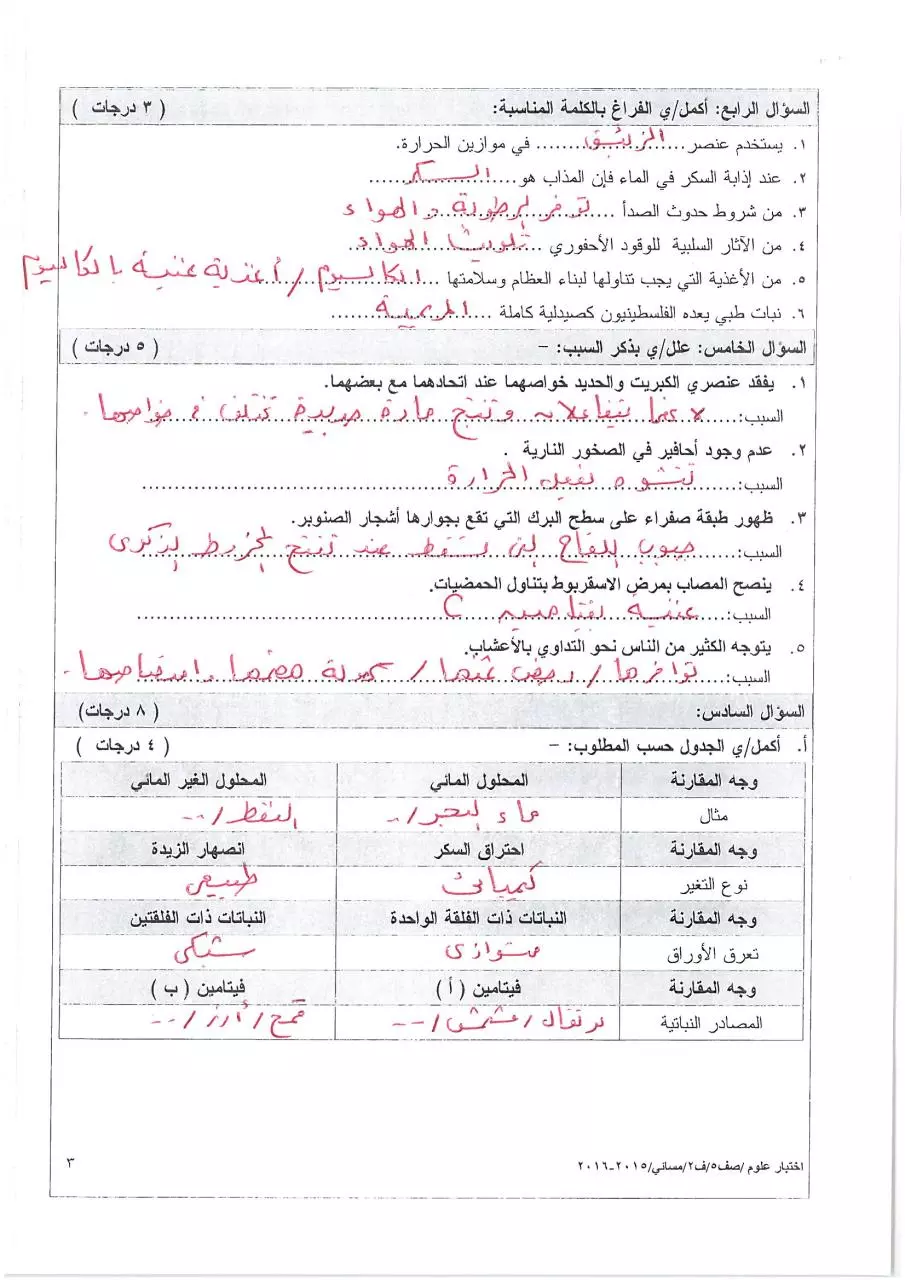 السؤال الرابع: أكمل/ي الفراغ بالكلمة المناسبة: ( ٣ درجات )
١. يستخدم عنصر......الزئبق........ في موازين الحرارة.
٢. عند إذابة السكر في الماء فإن المذاب هو......السكر......
٣. من شروط حدوث الصدأ ......توفر الرطوبة والهواء
٤. من الآثار السلبية للوقود الأحفوري ......تلويث الهواء......
٥. من الأغذية التي يجب تناولها لبناء العظام وسلامتها ......الكالسيوم / أغذية غنية بالكالسيوم
٦. نبات طبي يعده الفلسطينيون كصيدلية كاملة ......الميرمية......
السؤال الخامس: علل/ي بذكر السبب: - ( ٥ درجات )
١. يفقد عنصري الكبريت والحديد خواصهما عند اتحادهما مع بعضهما.
السبب:......لأنهما يتفاعلان وتنتج مادة جديدة تختلف في خواصها.
٢. عدم وجود أحافير في الصخور النارية .
السبب:......تتشوه بفعل الحرارة......
٣. ظهور طبقة صفراء على سطح البرك التي تقع بجوارها أشجار الصنوبر.
السبب:......حبوب اللقاح التي تسقط عند تفتح المخروط الذكري
٤. ينصح المصاب بمرض الاسقربوط بتناول الحمضيات.
السبب:......غنية بفيتامين C......
٥. يتوجه الكثير من الناس نحو التداوي بالأعشاب.
السبب:......توافرها / رخص ثمنها / سهولة هضمها وامتصاصها.
السؤال السادس: ( ٨ درجات)
أ. أكمل/ي الجدول حسب المطلوب: - ( ٤ درجات )
وجه المقارنة المحلول المائي المحلول الغير المائي
مثال ماء البحر /.. النفط /..
وجه المقارنة احتراق السكر انصهار الزبدة
نوع التغير كيميائي طبيعي
وجه المقارنة النباتات ذات الفلقة الواحدة النباتات ذات الفلقتين
تعرق الأوراق متوازي شبكي
وجه المقارنة فيتامين ( أ ) فيتامين ( ب )
المصادر النباتية برتقال / مشمش /-- قمح / أرز /--
اختبار علوم /صف٥/ف٢/مسائي/٢٠١٥-٢٠١٦ ٣